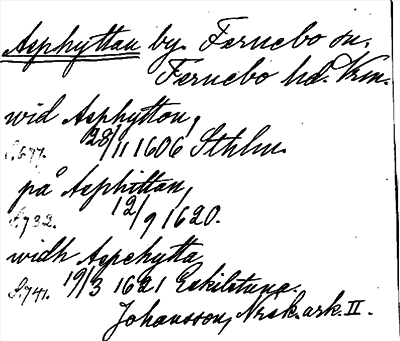 Asphyttan by. Fernebo sn.
Fernebo hd. Vrm.
wid Asphytton,
s. 677. 28/11 1606 Sthlm.
på Asphittan,
s. 732. 12/9 1620.
widh Aspehytta
s. 741. 19/3 1621 Eskilstuna.
Johansson, Norsk. ark. II.